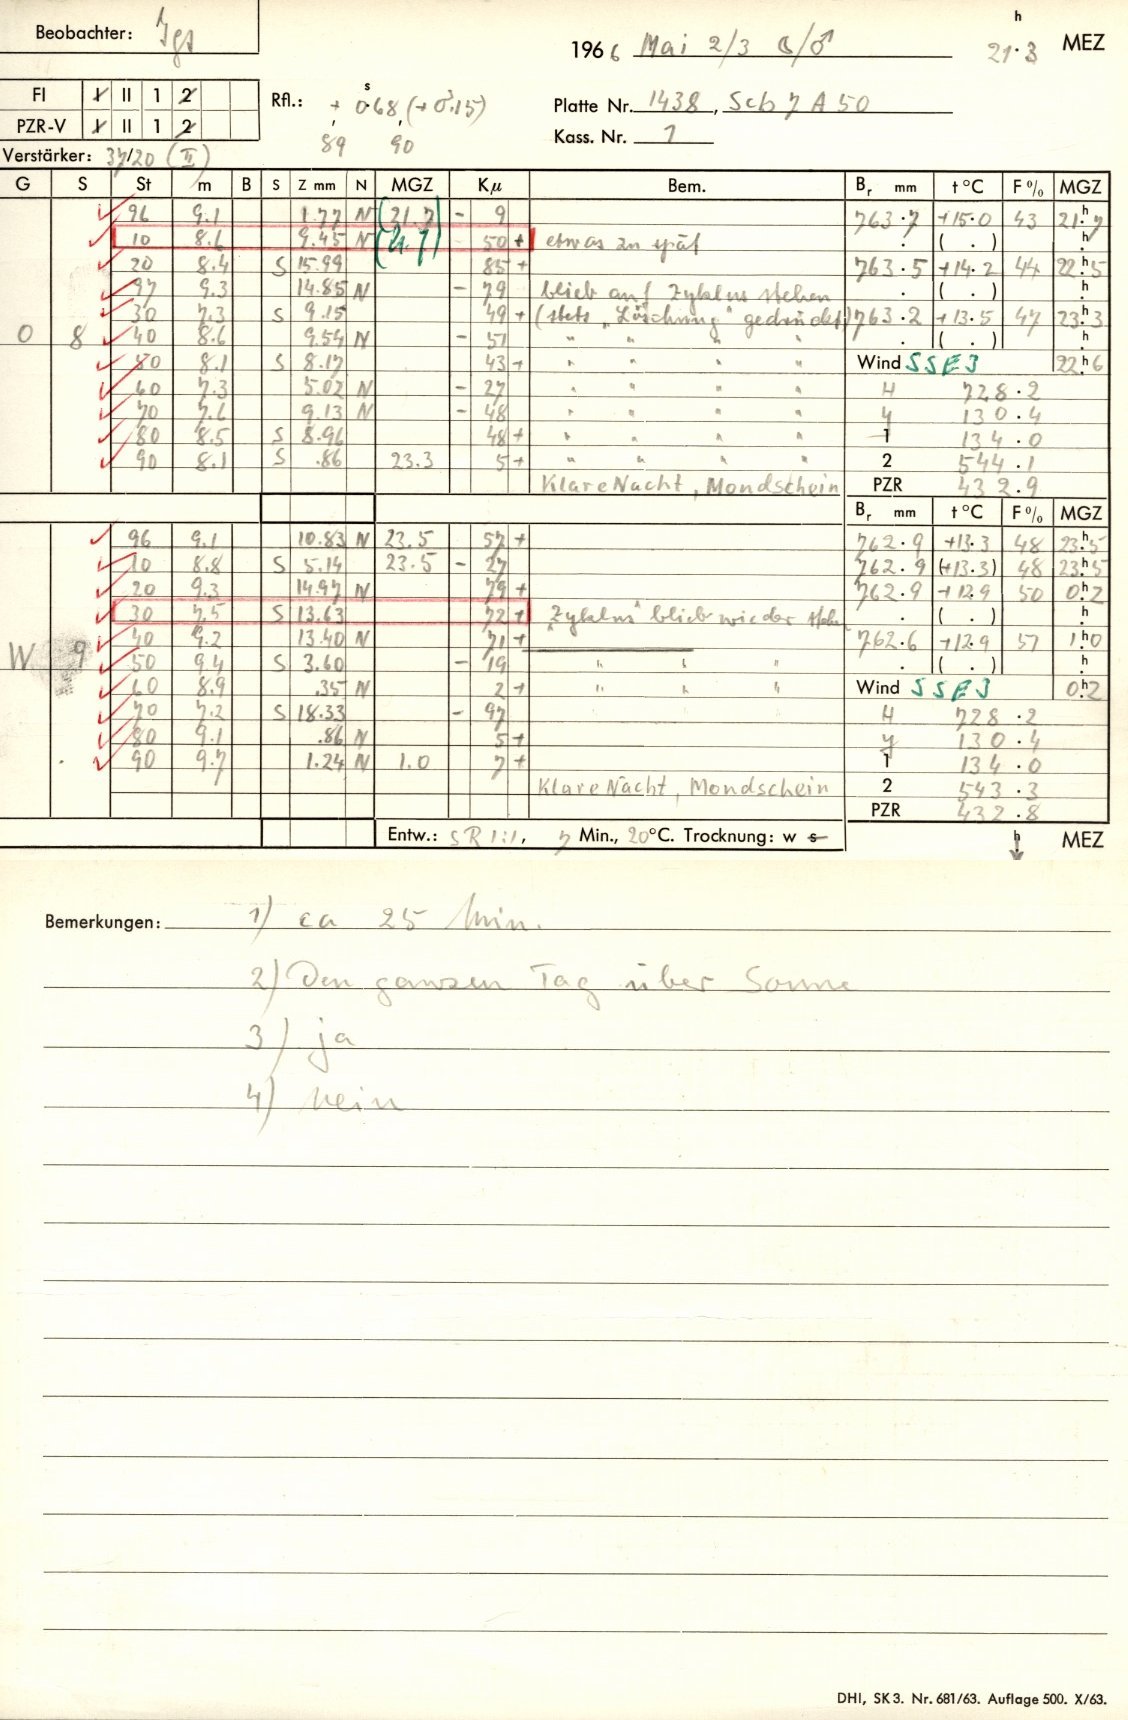 Beobachter: Jgs
1966 Mai 2/3 ☾/♂ 21ʰ.3 MEZ
FI I II 1 2
PZR-V I II 1 2
Rfl.: + 0ˢ.68 (+ 0.15)
89 90
Platte Nr. 1438, Scb 7 A 50
Kass. Nr. 1
Verstärker: 37/20 (II)
G S St m B S Z mm N MGZ Kµ Bem. Bᵣ mm t °C F % MGZ
96 9.1 1.77 N (21.7) - 9 763.7 +15.0 43 21ʰ.7
10 8.6 9.45 N 50 + etwas zu spät . ( . ) ʰ.
20 8.4 S 15.99 85 + 763.5 +14.2 44 22ʰ.5
97 9.3 14.85 N - 79 blieb auf Zyklus stehen . ( . ) ʰ.
30 7.3 S 9.15 49 + (stets "Löschung" gedrückt) 763.2 +13.5 47 23ʰ.3
O 8 40 8.6 9.54 N - 51 " " " " . ( . ) ʰ.
50 8.1 S 8.17 43 + " " " " Wind SSE3 22ʰ.6
60 7.3 5.02 N - 27 " " " " H 728.2
70 7.6 9.13 N - 48 " " " " y 130.4
80 8.5 S 8.96 48 + " " " " 1 134.0
90 8.1 S .86 23.3 5 + " " " " 2 544.1
Klare Nacht, Mondschein PZR 432.9
Bᵣ mm t °C F % MGZ
96 9.1 10.83 N 23.5 57 + 762.9 +13.3 48 23ʰ.5
10 8.8 S 5.14 23.5 - 27 762.9 (+13.3) 48 23ʰ.5
20 9.3 14.97 N 79 + 762.9 +12.9 50 0ʰ.2
30 7.5 S 13.63 72 + "Zyklus" blieb wieder stehen . ( . ) ʰ.
40 9.2 13.40 N 71 + 762.6 +12.9 51 1ʰ.0
W 9 50 9.4 S 3.60 - 19 " " " . ( . ) ʰ.
60 8.9 .35 N 2 + " " " Wind SSE3 0ʰ.2
70 7.2 S 18.33 - 97 " " " H 728.2
80 9.1 .86 N 5 + y 130.4
90 9.7 1.24 N 1.0 7 + 1 134.0
Klare Nacht, Mondschein 2 543.3
PZR 432.8
Entw.: SR 1:1, 7 Min., 20°C. Trocknung: w s ʰ MEZ
Bemerkungen: 1) ca 25 Min.
2) Den ganzen Tag über Sonne
3) ja
4) nein
DHI, SK 3. Nr. 681/63. Auflage 500. X/63.